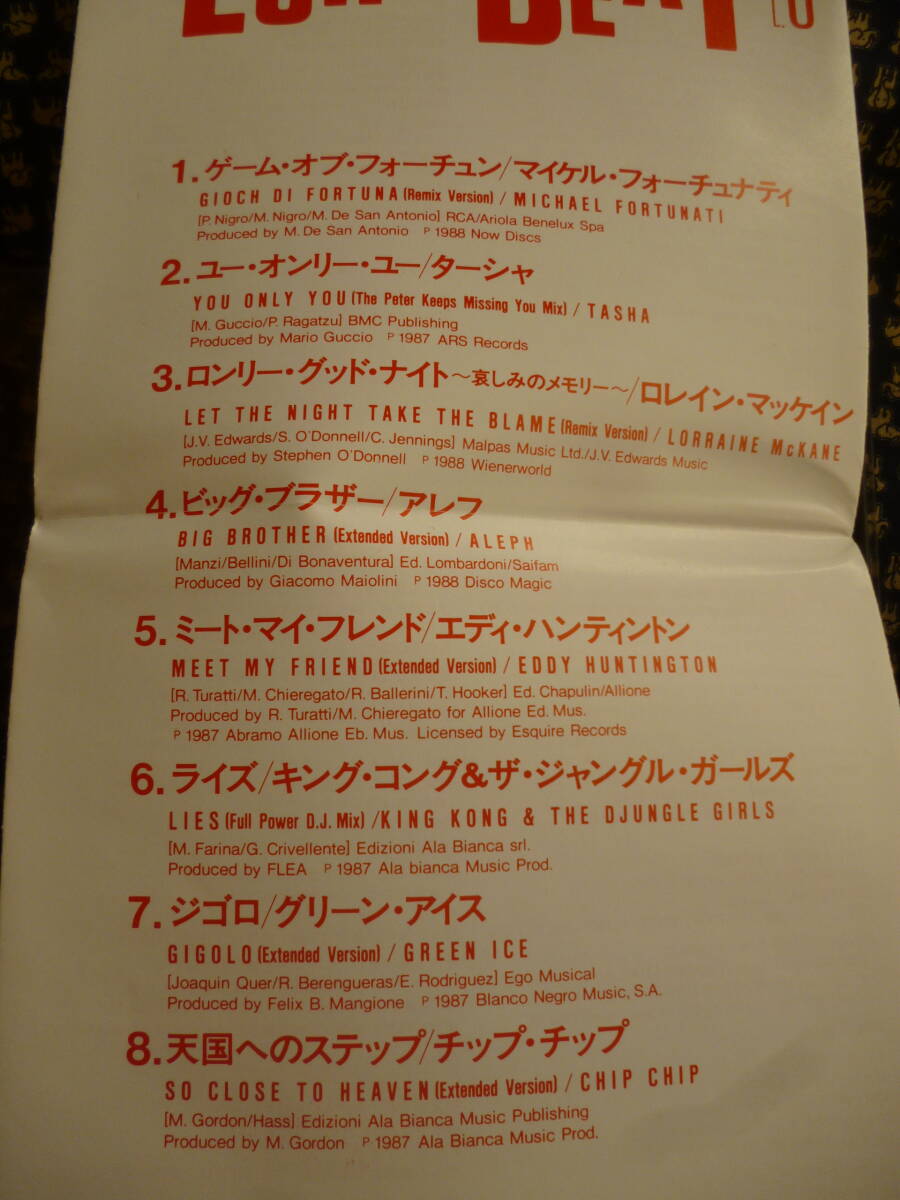 1.ゲーム・オブ・フォーチュン/マイケル・フォーチュナティ
GIOCH DI FORTUNA(Remix Version) / MICHAEL FORTUNATI
[P. Nigro/M. Nigro/M. De San Antonio] RCA/Ariola Benelux Spa
Produced by M. De San Antonio ℗ 1988 Now Discs
2.ユー・オンリー・ユー/ターシャ
YOU ONLY YOU(The Peter Keeps Missing You Mix) / TASHA
[M. Guccio/P. Ragatzu] BMC Publishing
Produced by Mario Guccio ℗ 1987 ARS Records
3.ロンリー・グッド・ナイト〜哀しみのメモリー〜/ロレイン・マッケイン
LET THE NIGHT TAKE THE BLAME(Remix Version) / LORRAINE McKANE
[J.V. Edwards/S. O'Donnell/C. Jennings] Malpas Music Ltd./J.V. Edwards Music
Produced by Stephen O'Donnell ℗ 1988 Wienerworld
4.ビッグ・ブラザー/アレフ
BIG BROTHER(Extended Version) / ALEPH
[Manzi/Bellini/Di Bonaventura] Ed. Lombardoni/Saifam
Produced by Giacomo Maiolini ℗ 1988 Disco Magic
5.ミート・マイ・フレンド/エディ・ハンティントン
MEET MY FRIEND(Extended Version) / EDDY HUNTINGTON
[R. Turatti/M. Chieregato/R. Ballerini/T. Hooker] Ed. Chapulin/Allione
Produced by R. Turatti/M. Chieregato for Allione Ed. Mus.
℗ 1987 Abramo Allione Eb. Mus. Licensed by Esquire Records
6.ライズ/キング・コング&ザ・ジャングル・ガールズ
LIES(Full Power D.J. Mix) /KING KONG & THE DJUNGLE GIRLS
[M. Farina/G. Crivellente] Edizioni Ala Bianca srl.
Produced by FLEA ℗ 1987 Ala bianca Music Prod.
7.ジゴロ/グリーン・アイス
GIGOLO(Extended Version) / GREEN ICE
[Joaquin Quer/R. Berengueras/E. Rodriguez] Ego Musical
Produced by Felix B. Mangione ℗ 1987 Blanco Negro Music, S.A.
8.天国へのステップ/チップ・チップ
SO CLOSE TO HEAVEN(Extended Version) / CHIP CHIP
[M. Gordon/Hass] Edizioni Ala Bianca Music Publishing
Produced by M. Gordon ℗ 1987 Ala Bianca Music Prod.